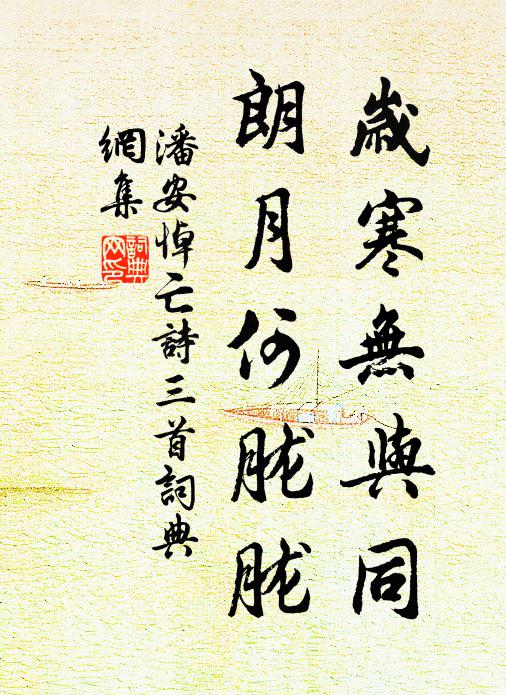 歲寒無與同
朗月何朧朧
潘安悼亡詩三首詞典
網集
詞典
网印